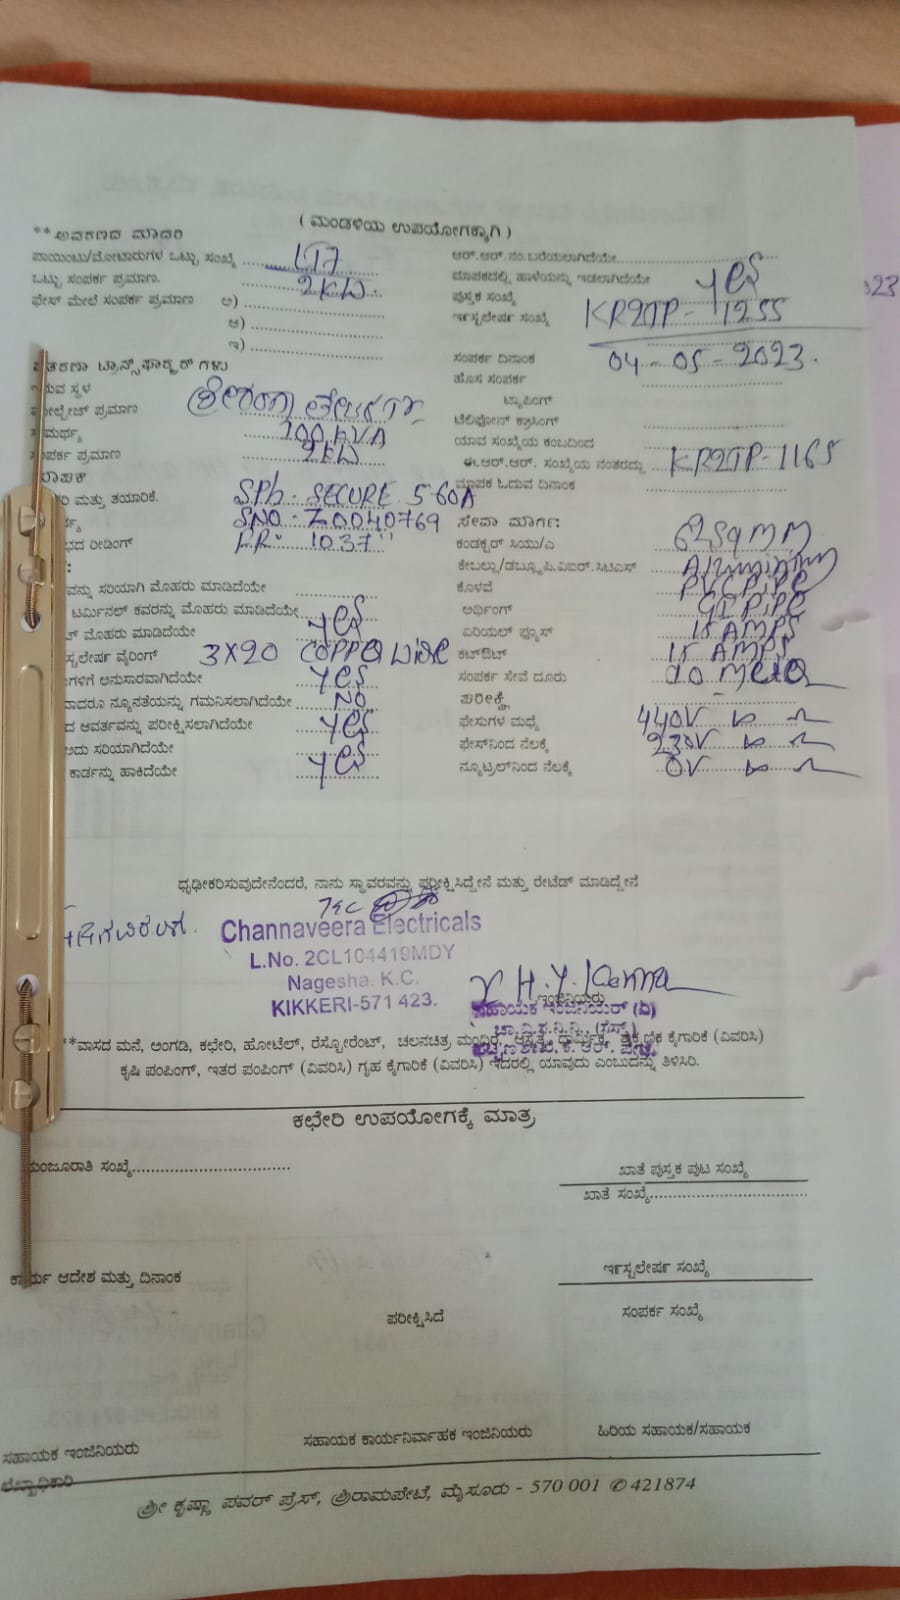 ( ಮಂಡಳಿಯ ಉಪಯೋಗಕ್ಕಾಗಿ )
**ಆವರಣದ ಮಾದರಿ
ಪಾಯಿಂಟು/ಮೋಟಾರುಗಳ ಒಟ್ಟು ಸಂಖ್ಯೆ LT7
ಆರ್.ಆರ್.ನಂ.ಬರೆಯಲಾಗಿದೆಯೇ
ಒಟ್ಟು ಸಂಪರ್ಕ ಪ್ರಮಾಣ. 2KW
ಮಾಪಕದಲ್ಲಿ ಹಾಳೆಯನ್ನು ಇಡಲಾಗಿದೆಯೇ yes
ಫೇಸ್ ಮೇಲೆ ಸಂಪರ್ಕ ಪ್ರಮಾಣ ಅ)
ಪುಸ್ತಕ ಸಂಖ್ಯೆ
ಆ)
ಇನ್ಸ್ಟಲೇಷನ್ ಸಂಖ್ಯೆ KR2TP-1255
ಇ)
023
ಸಂಪರ್ಕ ದಿನಾಂಕ 04-05-2023.
ವಿತರಣಾ ಟ್ರಾನ್ಸ್‌ಫಾರ್ಮರ್ ಗಳು
ಹೊಸ ಸಂಪರ್ಕ
ಇರುವ ಸ್ಥಳ
ಟ್ಯಾಪಿಂಗ್
ವೋಲ್ಟೇಜ್ ಪ್ರಮಾಣ
ಟೆಲಿಫೋನ್ ಕ್ರಾಸಿಂಗ್
ಸಾಮರ್ಥ್ಯ 100 KVA
ಯಾವ ಸಂಖ್ಯೆಯ ಕಂಬದಿಂದ
ಸಂಪರ್ಕ ಪ್ರಮಾಣ 2KW
ಈ.ಆರ್.ಆರ್. ಸಂಖ್ಯೆಯ ನಂತರದ್ದು KR2TP-1165
ಮಾಪಕ
ಮಾಪಕ ಓದುವ ದಿನಾಂಕ
ಮತ್ತು ತಯಾರಿಕೆ. SPh. SECURE 5-60A
SNO: Z0040769
ಸೇವಾ ಮಾರ್ಗ:
ರೀಡಿಂಗ್ F.R: "1037"
ಕಂಡಕ್ಟರ್ ಸಿಯು/ಎ
ಕೇಬಲ್ಲು/ಡಬ್ಲ್ಯೂ.ಪಿ.ಐಆರ್.ಸಿಟಿಎಸ್ Aluminium
ವನ್ನು ಸರಿಯಾಗಿ ಮೊಹರು ಮಾಡಿದೆಯೇ
ಕೊಳವೆ PVC PIPE
ಟರ್ಮಿನಲ್ ಕವರನ್ನು ಮೊಹರು ಮಾಡಿದೆಯೇ yes
ಅರ್ಥಿಂಗ್ GI PIPE
ಮೊಹರು ಮಾಡಿದೆಯೇ
ಏರಿಯಲ್ ಫ್ಯೂಸ್ 15 AMPS
ವೈರಿಂಗ್ 3X20 COPPER WIRE
ಕಟ್‌ಔಟ್ 15 AMPS
ಅನುಸಾರವಾಗಿದೆಯೇ yes
ಸಂಪರ್ಕ ಸೇವೆ ದೂರು 10 meter
ನ್ಯೂನತೆಯನ್ನು ಗಮನಿಸಲಾಗಿದೆಯೇ NO
ಪರೀಕ್ಷೆ
ಆವರ್ತವನ್ನು ಪರೀಕ್ಷಿಸಲಾಗಿದೆಯೇ yes
ಫೇಸುಗಳ ಮಧ್ಯೆ 440V
ಸರಿಯಾಗಿದೆಯೇ
ಫೇಸ್‌ನಿಂದ ನೆಲಕ್ಕೆ 230V
ಕಾರ್ಡನ್ನು ಹಾಕಿದೆಯೇ yes
ನ್ಯೂಟ್ರಲ್‌ನಿಂದ ನೆಲಕ್ಕೆ 0V
ಧೃಢೀಕರಿಸುವುದೇನೆಂದರೆ, ನಾನು ಸ್ಥಾವರವನ್ನು ಪರೀಕ್ಷಿಸಿದ್ದೇನೆ ಮತ್ತು ರೇಟೆಡ್ ಮಾಡಿದ್ದೇನೆ
Channaveera Electricals
L.No. 2CL104419MDY
Nagesha. K.C.
KIKKERI-571 423.
ಇಂಜಿನಿಯರು
ಸಹಾಯಕ ಇಂಜಿನಿಯರ್ (ವಿ)
**ವಾಸದ ಮನೆ, ಅಂಗಡಿ, ಕಛೇರಿ, ಹೋಟೆಲ್, ರೆಸ್ಟೋರೆಂಟ್, ಚಲನಚಿತ್ರ ಮಂದಿರ, ಆಸ್ಪತ್ರೆ, ಧಾರ್ಮಿಕ, ಶೈಕ್ಷಣಿಕ ಕೈಗಾರಿಕೆ (ವಿವರಿಸಿ)
ಕೃಷಿ ಪಂಪಿಂಗ್, ಇತರ ಪಂಪಿಂಗ್ (ವಿವರಿಸಿ) ಗೃಹ ಕೈಗಾರಿಕೆ (ವಿವರಿಸಿ) ಇದರಲ್ಲಿ ಯಾವುದು ಎಂಬುದನ್ನು ತಿಳಿಸಿರಿ.
ಕಛೇರಿ ಉಪಯೋಗಕ್ಕೆ ಮಾತ್ರ
ಮಂಜೂರಾತಿ ಸಂಖ್ಯೆ
ಖಾತೆ ಪುಸ್ತಕ ಪುಟ ಸಂಖ್ಯೆ
ಖಾತೆ ಸಂಖ್ಯೆ
ಕಾರ್ಯ ಆದೇಶ ಮತ್ತು ದಿನಾಂಕ
ಇನ್ಸ್ಟಲೇಷನ್ ಸಂಖ್ಯೆ
ಪರೀಕ್ಷಿಸಿದೆ
ಸಂಪರ್ಕ ಸಂಖ್ಯೆ
ಸಹಾಯಕ ಇಂಜಿನಿಯರು
ಸಹಾಯಕ ಕಾರ್ಯನಿರ್ವಾಹಕ ಇಂಜಿನಿಯರು
ಹಿರಿಯ ಸಹಾಯಕ/ಸಹಾಯಕ
ಲೆಖ್ಖಾಧಿಕಾರಿ
ಶ್ರೀ ಕೃಷ್ಣಾ ಪವರ್ ಪ್ರೆಸ್, ಶ್ರೀರಾಮಪೇಟೆ, ಮೈಸೂರು - 570 001 ✆ 421874